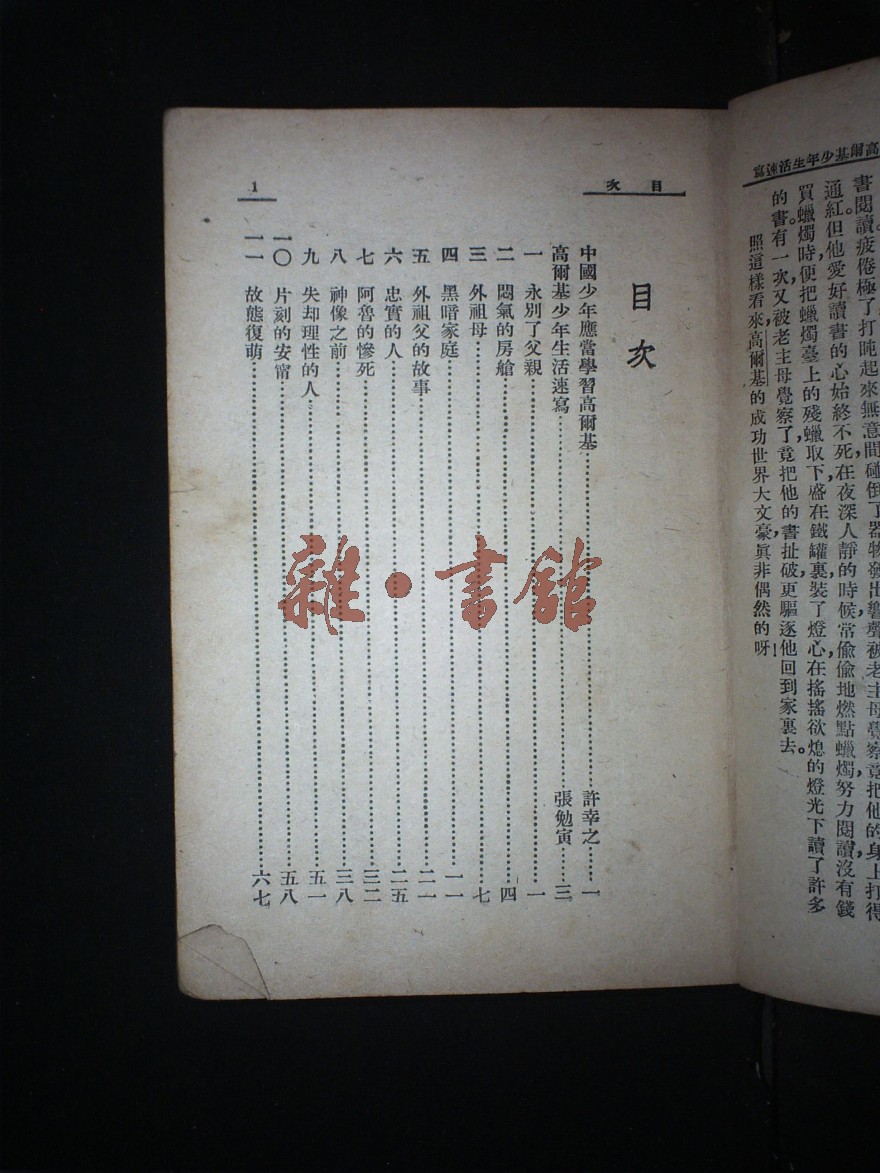 高爾基少年生活速寫
書閱讀疲倦極了打盹起來無意間碰倒了器物發出響聲被老主母覺察竟把他的身上打得
通紅。但他愛好讀書的心始終不死在夜深人靜的時候常偷偷地燃點蠟燭努力閱讀沒有錢
買蠟燭時便把蠟燭臺上的殘蠟取下盛在鐵罐裏裝了燈心在搖搖欲熄的燈光下讀了許多
的書。有一次又被老主母覺察了竟把他的書扯破更驅逐他回到家裏去。
照這樣看來高爾基的成功世界大文豪眞非偶然的呀！
目次
1
目次
中國少年應當學習高爾基……許幸之……一
高爾基少年生活速寫……張勉寅……三
一 永別了父親……一
二 悶氣的房艙……四
三 外祖母……七
四 黑暗家庭……一一
五 外祖父的故事……二一
六 忠實的人……二五
七 阿魯的慘死……三二
八 神像之前……三八
九 失却理性的人……五一
一〇 片刻的安甯……五八
一一 故態復萌……六七
雜·書館